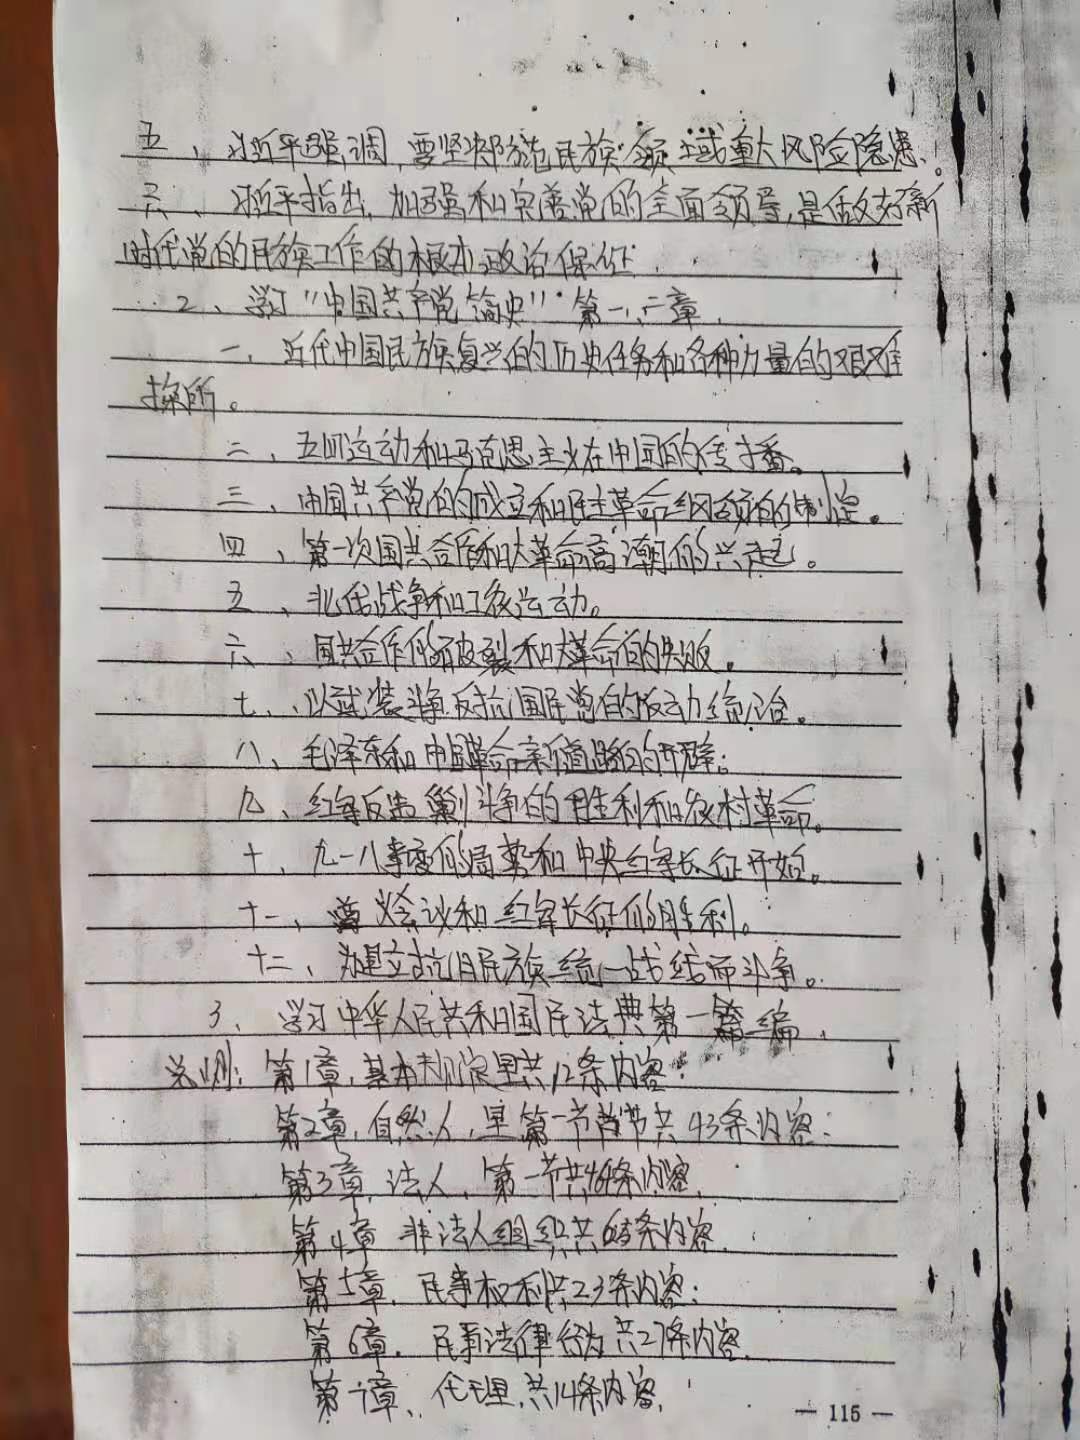 五、习近平强调,要坚决防范民族领域重大风险隐患、
六、习近平指出,加强和完善党的全面领导,是做好新
时代党的民族工作的根本政治保证.
2、学习"中国共产党简史"第一、二章.
一、近代中国民族复兴的历史任务和各种力量的艰难
探所。
二、五四运动和马克思主义在中国的传播。
三、中国共产党的成立和民主革命纲领的制定。
四、第一次国共合作和大革命高潮的兴起。
五、北伐战争和工农运动。
六、国共合作的破裂和大革命的失败。
七、以武装斗争反抗国民党的反动统治。
八、毛泽东和中国革命新道路的开辟;
九、红军反围剿斗争的胜利和农村革命。
十、九一八事变的局势和中央红军长征开始。
十一、遵义会议和红军长征的胜利。
十二、为建立抗日民族统一战线而斗争。
3、学习中华人民共和国民法典第一编、
说明:第1章,基本规定里共12条内容:
第2章,自然人,里第一节首节共43条内容:
第3章,法人,第一节共条内容,
第4章 非法人组织共条内容,
第5章,民事权利共23条内容:
第6章,民事法律行为共27条内容,
第7章、代理,共14条内容,
— 115 —